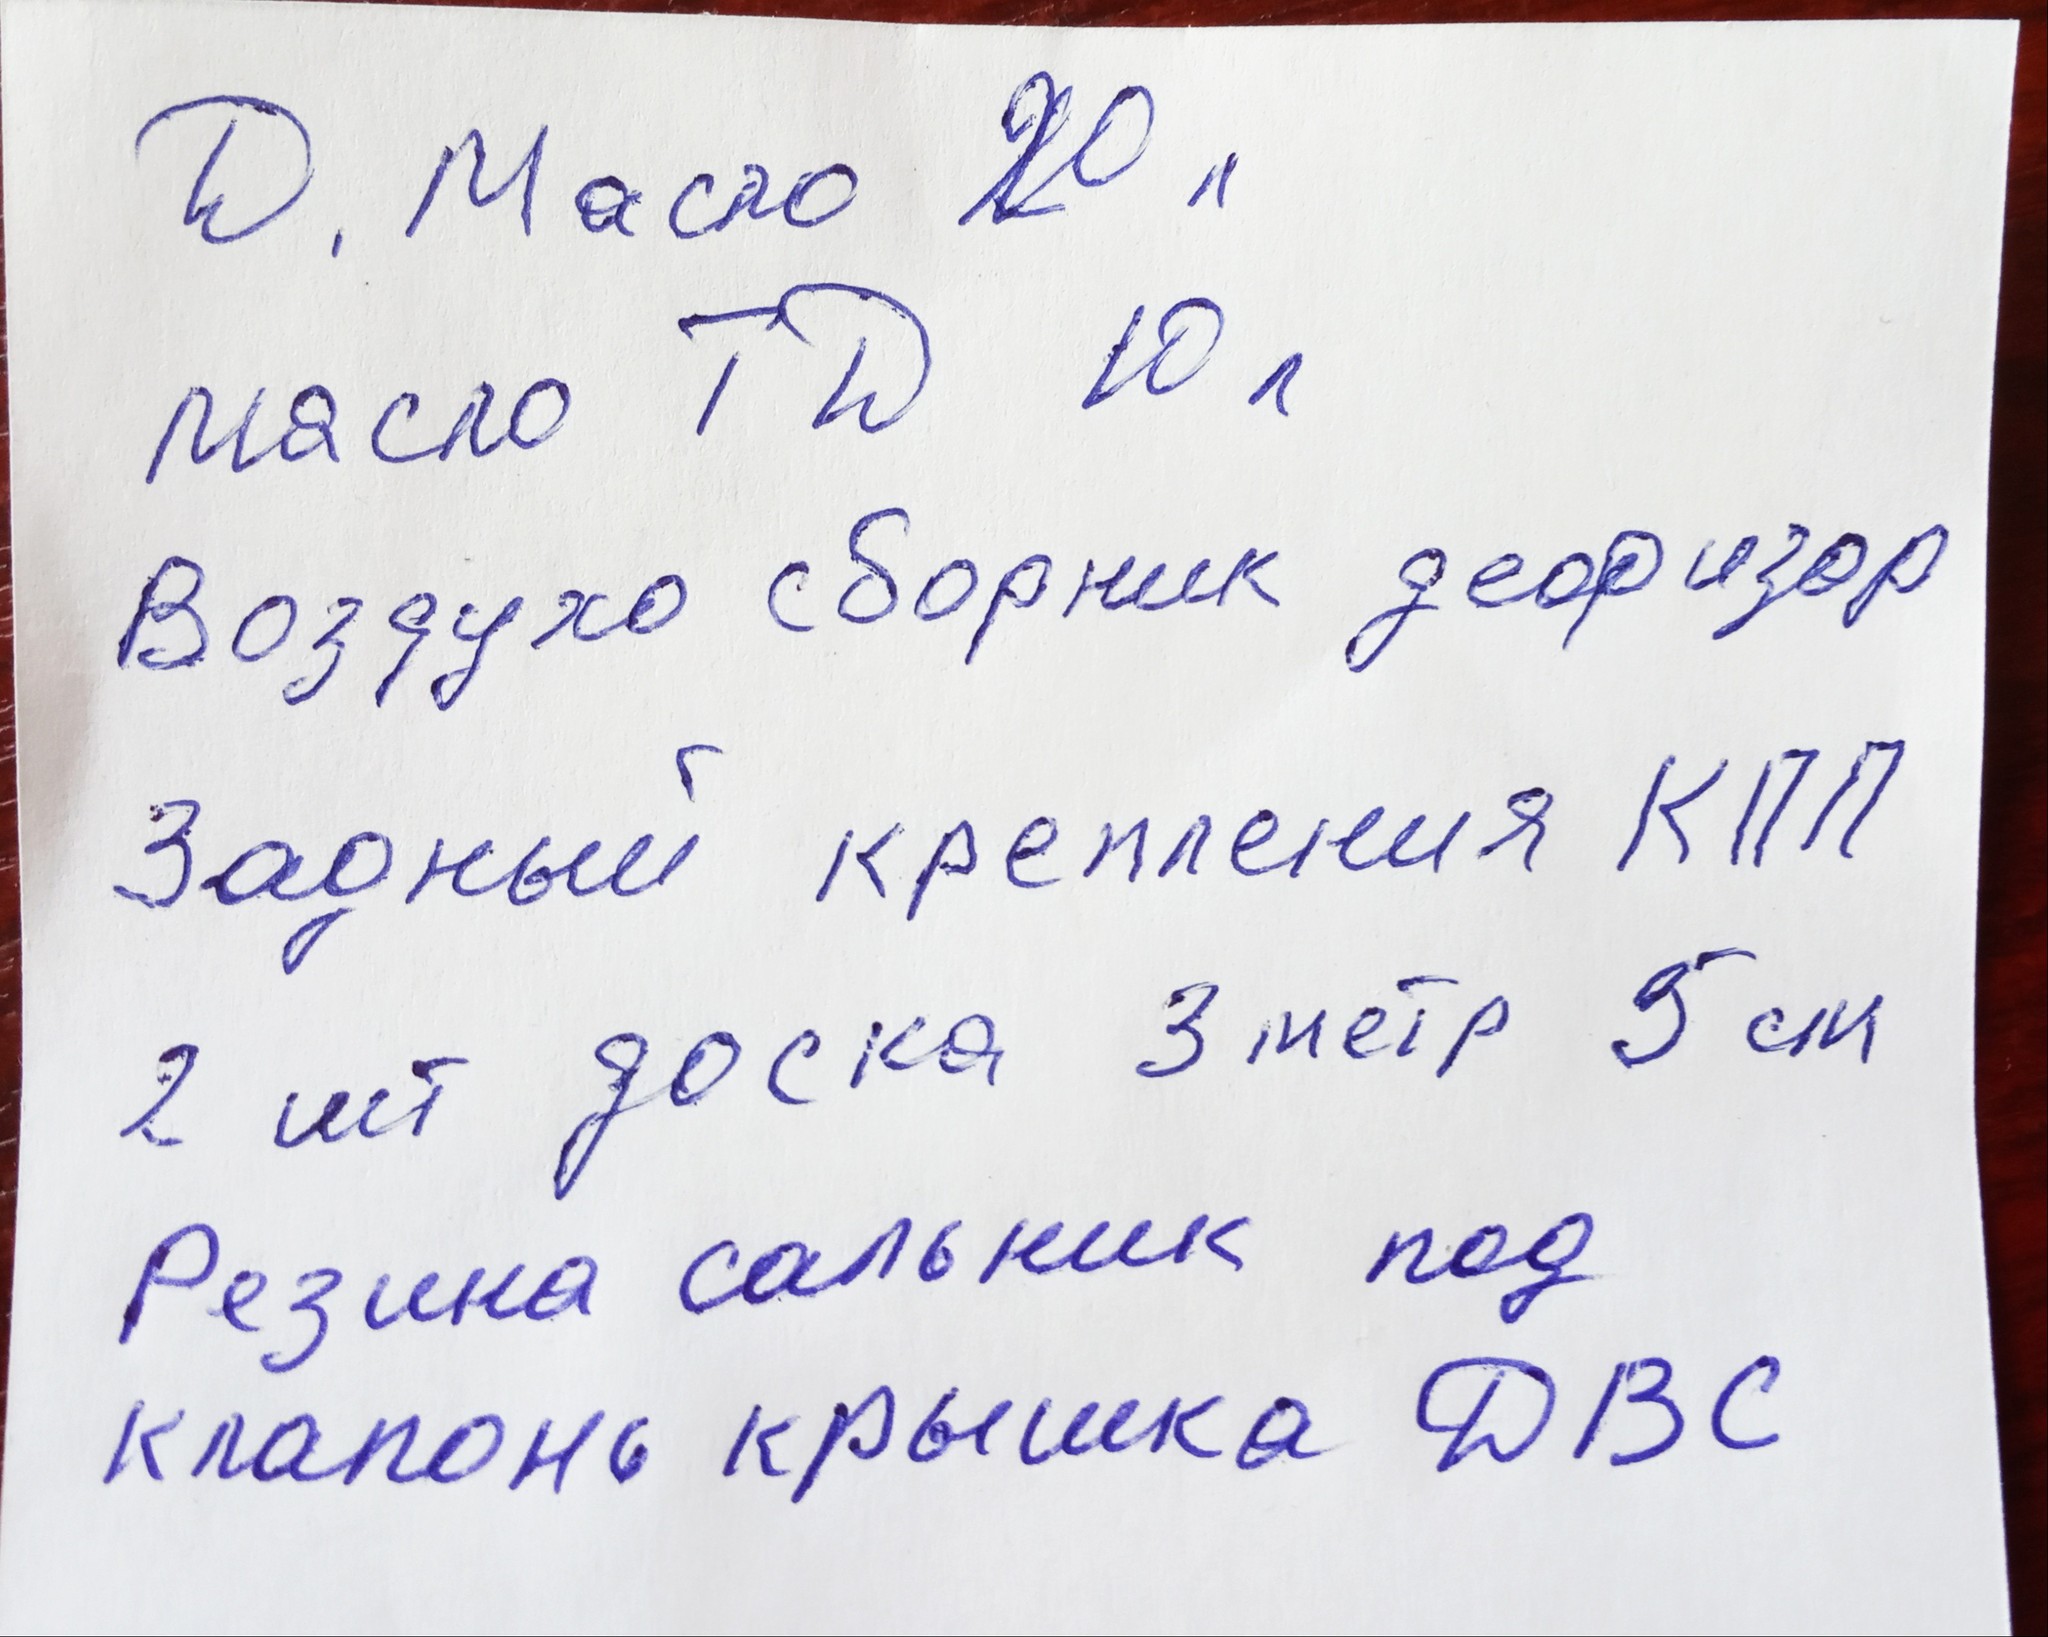 Д. Масло 20 л
масло ТД 10 л
Воздухо сборник деоризор
Задный крепления КПП
2 шт доска 3 метр 5 см
Резина сальник под
клапонь крышка ДВС